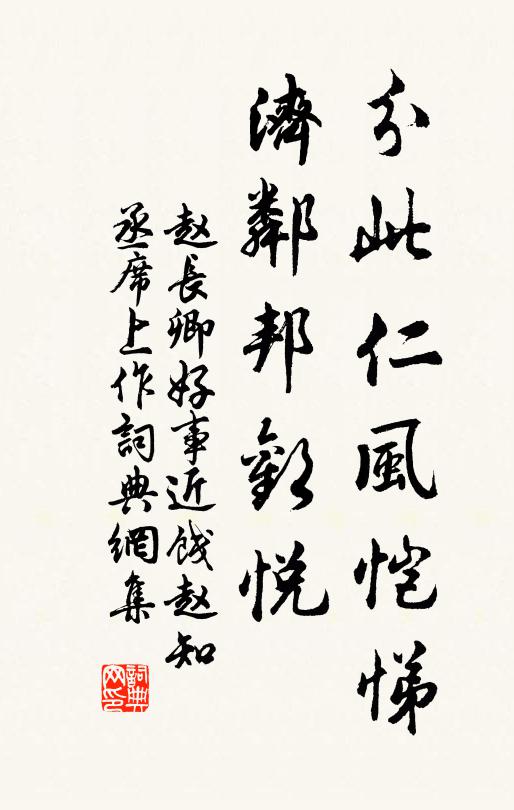 分此仁風恺悌
濟鄰邦歡悦
赵長卿好事近餞赵知
丞席上作詞典網集
詞典网印